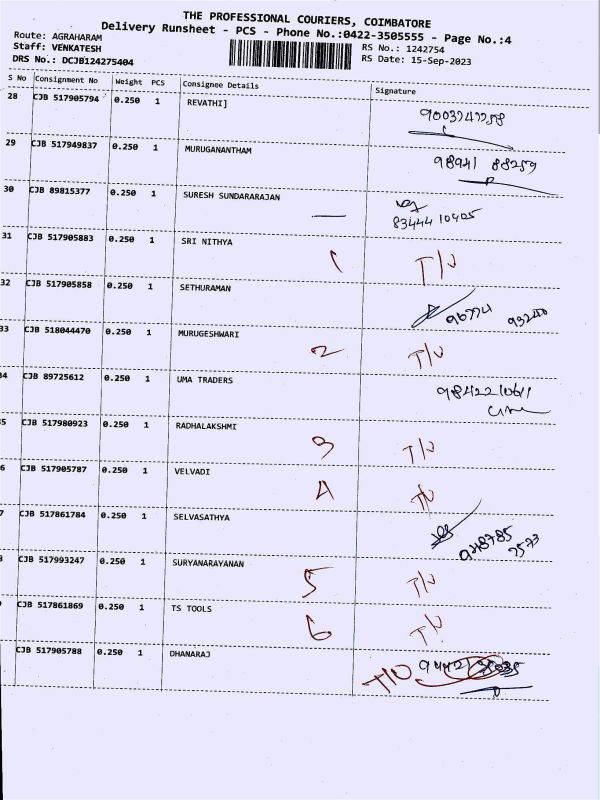 THE PROFESSIONAL COURIERS, COIMBATORE
Delivery Runsheet - PCS - Phone No.:0422-3505555 - Page No.:4
Route: AGRAHARAM
Staff: VENKATESH
DRS No.: DCJB124275404
RS No.: 1242754
RS Date: 15-Sep-2023
S No Consignment No Weight PCS Consignee Details Signature
28 CJB 517905794 0.250 1 REVATHI]
29 CJB 517949837 0.250 1 MURUGANANTHAM 98941 88259
30 CJB 89815377 0.250 1 SURESH SUNDARARAJAN
83444 10405
31 CJB 517905883 0.250 1 SRI NITHYA 1 T/U
32 CJB 517905858 0.250 1 SETHURAMAN 96774 93240
33 CJB 518044470 0.250 1 MURUGESHWARI 2 T/U
34 CJB 89725612 0.250 1 UMA TRADERS 9842210611
5 CJB 517980923 0.250 1 RADHALAKSHMI 3 T/U
6 CJB 517905787 0.250 1 VELVADI 4 T/U
7 CJB 517861784 0.250 1 SELVASATHYA
CJB 517993247 0.250 1 SURYANARAYANAN 5 T/U
CJB 517861869 0.250 1 TS TOOLS 6 T/U
CJB 517905788 0.250 1 DHANARAJ T/O